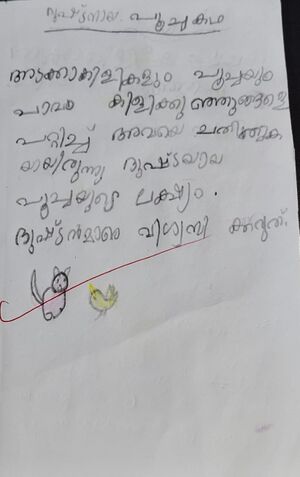 ദുഷ്ടനായ പൂച്ചകഥ
അടക്കാകിളികളും പൂച്ചയും
പാവം കിളിക്കുഞ്ഞുങ്ങളെ
പറ്റിച്ച് അവയെ ചതിക്കുക
യായിരുന്നു ദുഷ്ടയായ
പൂച്ചയുടെ ലക്ഷ്യം.
ദുഷ്ടൻമാരെ വിശ്വസി ക്കരുത്.